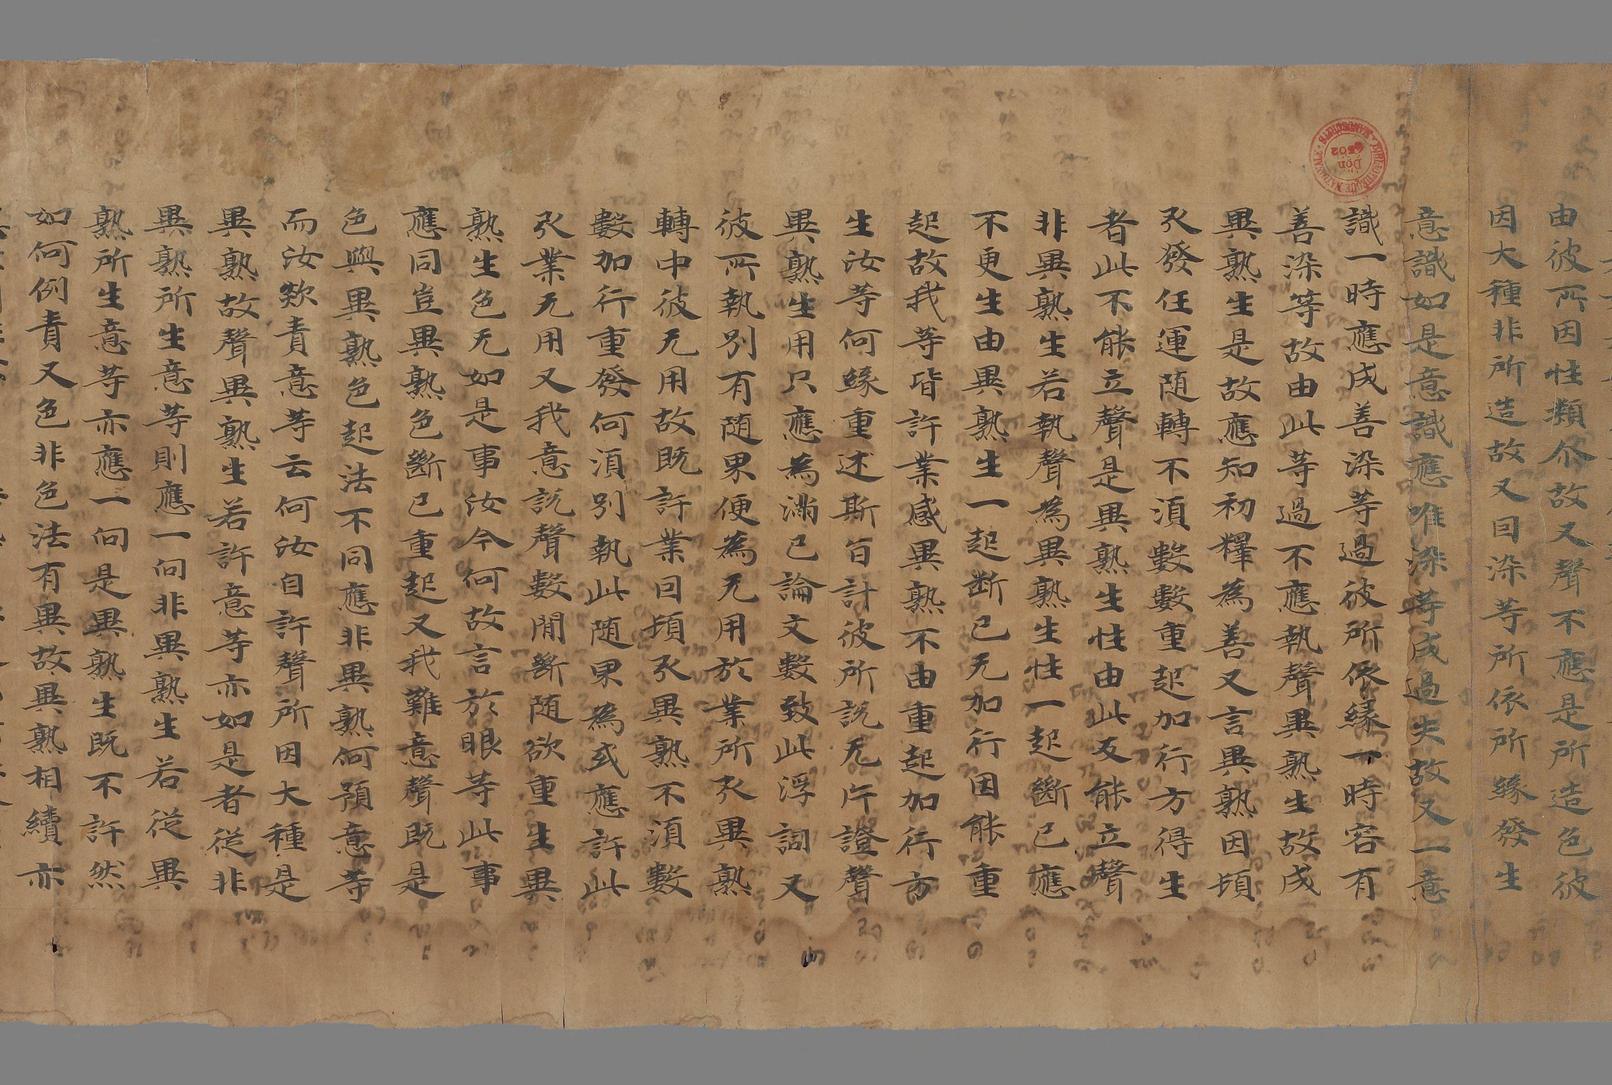 由彼所因性類尒故又聲不應是所造色彼
因大種非所造故又因染等所依所緣發生
意識如是意識應唯染等成過失故又一意
識一時應成善染等過彼所依緣一時容有
善染等故由此等過不應執聲異熟生故成
異熟生是故應知初釋為善又言異熟因頓
引發任運随轉不湏數數重起加行方得生
者此不能立聲是異熟生性由此友能立聲
非異熟生若執聲為異熟生性一起斷已應
不更生由異熟生一起断已无加行因能重
起故我等皆許業感異熟不由重起加行方
生汝等何緣重述斯旨計彼所說无片證聲
異熟生用只應為滿已論文數致此浮詞又
彼所執別有随果便為无用於業所引異熟
轉中彼无用故既許業因頓引異熟不湏數
數加行重發何湏別執此随果為或應許此
引業无用又我意說聲數間斷随欲重生異
熟生色无如是事汝今何故言於眼等此事
應同豈異熟色斷已重起又我難意聲既是
色與異熟色起法不同應非異熟何預意等
而汝欻責意等云何汝自許聲所因大種是
異熟故聲異熟生若許意等亦如是者從非
異熟所生意等則應一向非異熟生若從異
熟所生意等亦應一向是異熟生既不許然
如何例責又色非色法有異故異熟相續亦